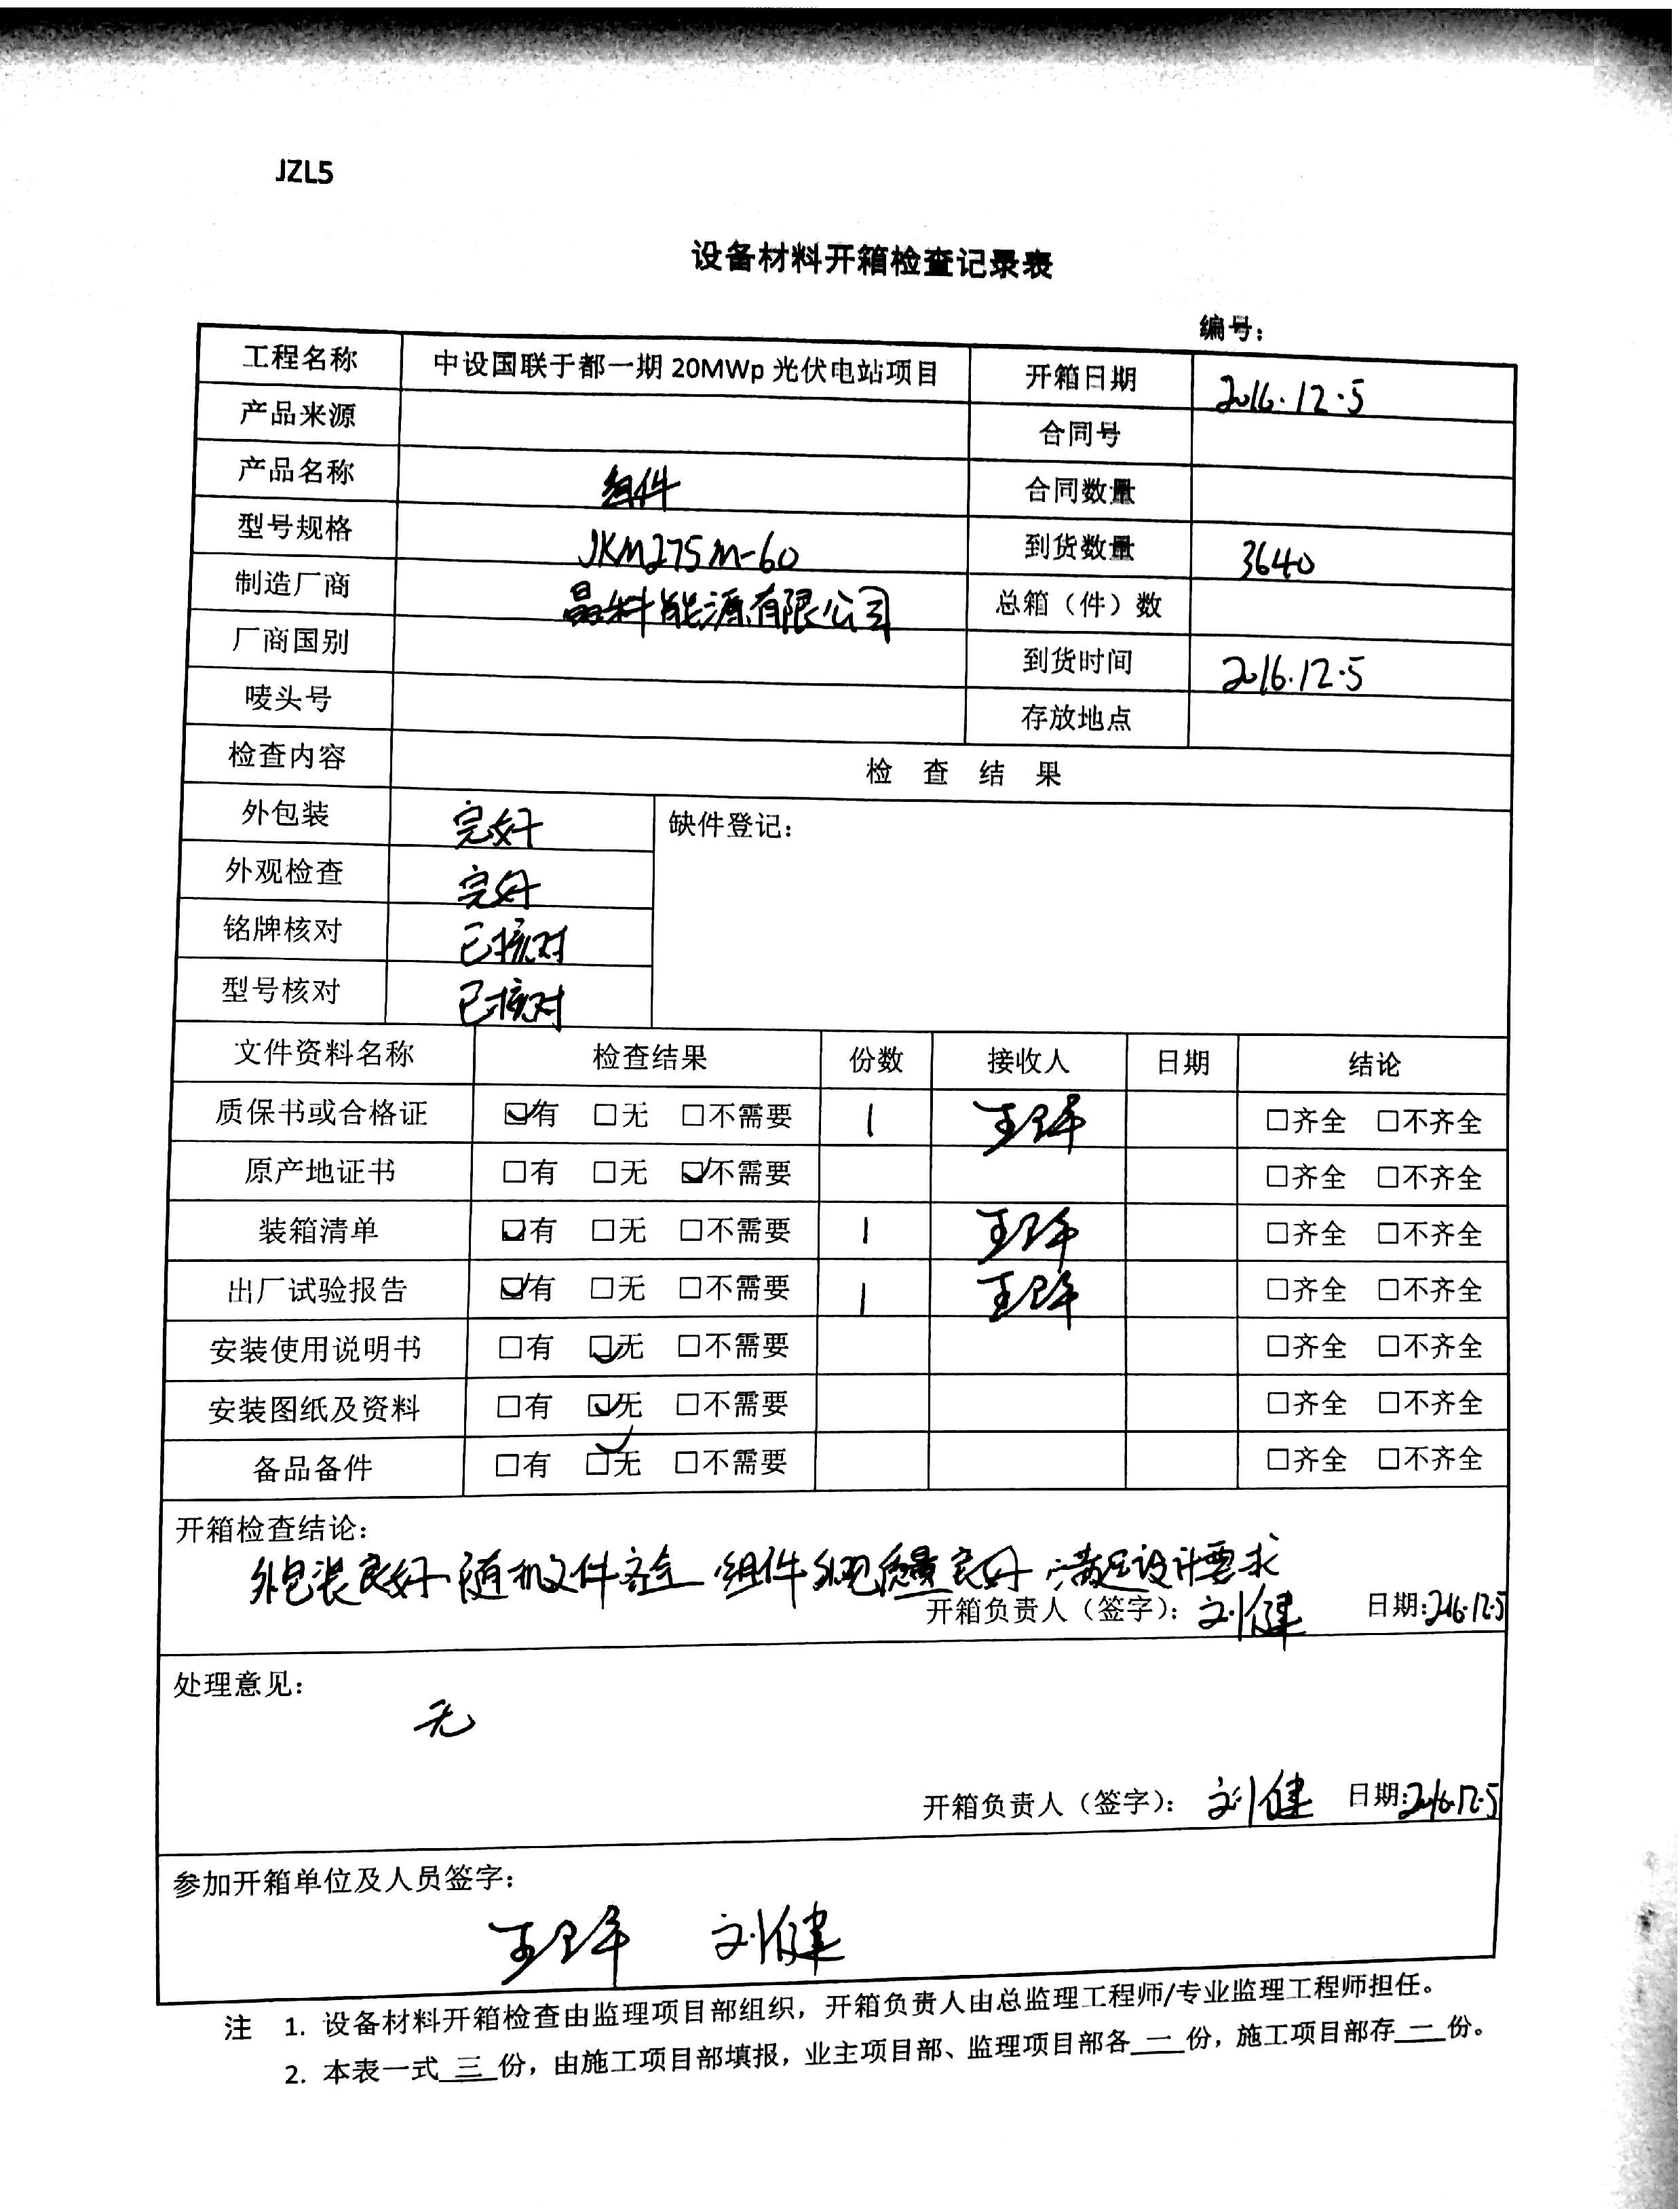 JZL5
设备材料开箱检查记录表
编号：
工程名称 中设国联于都一期 20MWp 光伏电站项目 开箱日期 2016.12.5
产品来源 合同号
产品名称 组件 合同数量
型号规格 JKM275M-60 到货数量 3640
制造厂商 晶科能源有限公司 总箱（件）数
厂商国别 到货时间 2016.12.5
唛头号 存放地点
检查内容 检 查 结 果
外包装 完好 缺件登记：
外观检查 完好
铭牌核对 已核对
型号核对 已核对
文件资料名称 检查结果 份数 接收人 日期 结论
质保书或合格证 ☑有 □无 □不需要 1 □齐全 □不齐全
原产地证书 □有 □无 ☑不需要 □齐全 □不齐全
装箱清单 ☑有 □无 □不需要 1 □齐全 □不齐全
出厂试验报告 ☑有 □无 □不需要 1 □齐全 □不齐全
安装使用说明书 □有 ☑无 □不需要 □齐全 □不齐全
安装图纸及资料 □有 ☑无 □不需要 □齐全 □不齐全
备品备件 □有 ☑无 □不需要 □齐全 □不齐全
开箱检查结论：
外包装良好 随机文件齐全 组件外观质量良好 满足设计要求
开箱负责人（签字）： 刘健 日期：2016.12.5
处理意见：
无
开箱负责人（签字）： 刘健 日期：2016.12.5
参加开箱单位及人员签字：
刘健
注 1. 设备材料开箱检查由监理项目部组织，开箱负责人由总监理工程师/专业监理工程师担任。
2. 本表一式 三 份，由施工项目部填报，业主项目部、监理项目部各 一 份，施工项目部存 一 份。